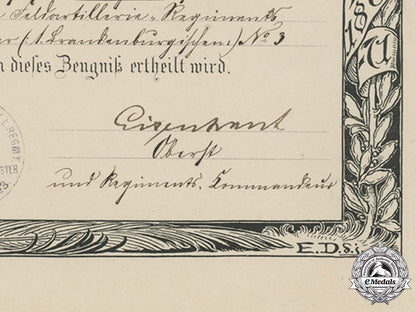 Feldartillerie-Regiments
(1. Brandenburgischen:) No 3
dieses Zeugniß ertheilt wird.
Oberst
und Regiments. Commandeur
E.D.S.
eMedals